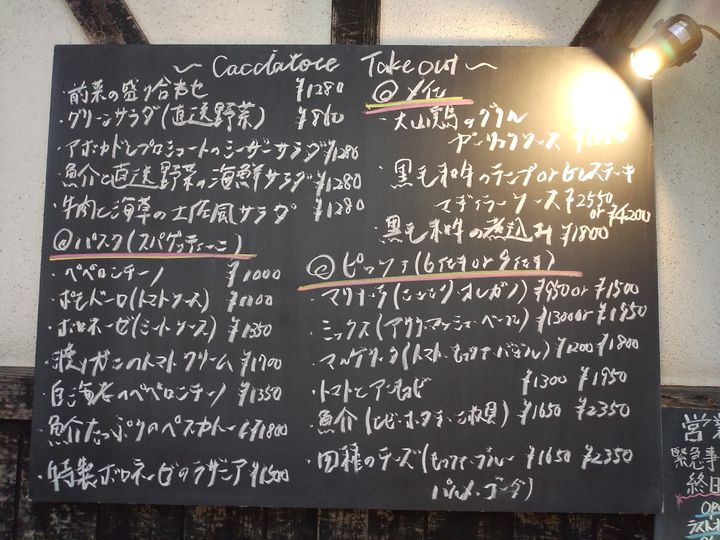 ~ Cacciatore Take out ~
・前菜の盛り合わせ ¥1280
・グリーンサラダ(直送野菜) ¥860
・アボカドとプロシュートのシーザーサラダ ¥1280
・魚介と直送野菜の海鮮サラダ ¥1280
・牛肉と海草の土佐風サラダ ¥1280
@パスタ(スパゲッティーニ)
・ペペロンチーノ ¥1000
・ポモドーロ(トマトソース) ¥1100
・ボロネーゼ(ミートソース) ¥1350
・渡りガニのトマトクリーム ¥1700
・白海老のペペロンチーノ ¥1350
・魚介たっぷりのペスカトーレ ¥1800
・特製ボロネーゼのラザニア ¥1500
@メイン
・大山鶏のグリル
ソース
・黒毛和牛のランプ or ヒレステーキ
マディラソース ¥2550
or ¥4200
・黒毛和牛の煮込み ¥1800
@ピッツァ(6ピース or 9ピース)
・マリナーラ(にんにく オレガノ) ¥950 or ¥1500
・ミックス(アサリ・マッシュ・ベーコン) ¥1300 or ¥1950
・マルゲリータ(トマト・モッツァ・バジル) ¥1200 ¥1800
・トマトとアンチョビ ¥1300 ¥1950
・魚介(エビ・ホタテ・小柱貝) ¥1650 ¥2350
・四種のチーズ(モッツァ・ブルー ¥1650 ¥2350
パルメ・ゴーダ)
営業
緊急事
終日
OPE